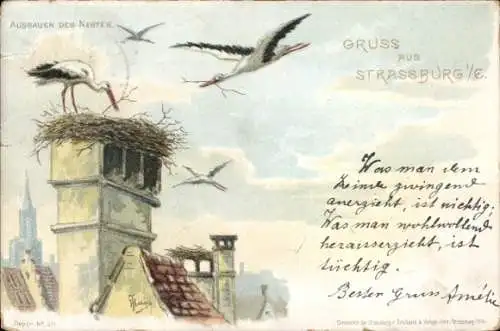 AUSBAUEN DES NESTES.
GRUSS
AUS
STRASSBURG I/E.
Was man dem
Kinde zwingend
anerzieht, ist nichtig.
Was man wohlwollend
herauserzieht, ist
tüchtig.
Bester Gruss Amélie